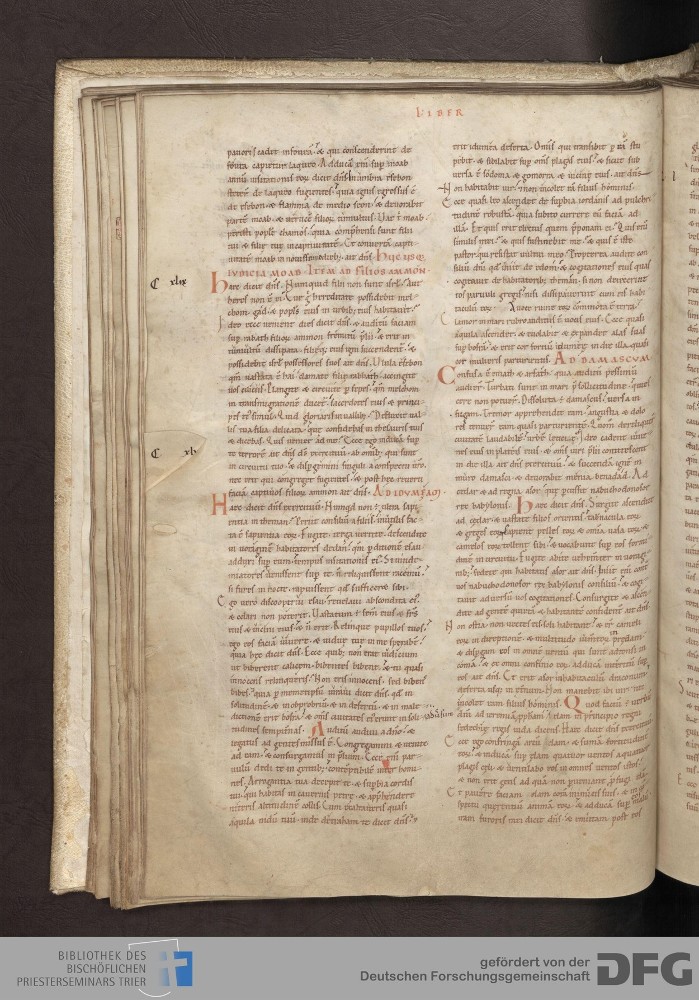 LIBER
pavoris cadet in foveā. & qui conscenderint de
fovea capietur laqueo. Adducā enī sup moab
annū visitationis eoʒ dicit dn̄s. In umbra esebon
steterunt de laqueo fugientes. quia ignis egressus ē
de esebon. & flamma de medio seon. & devorabit
partē moab. & verticē filioʒ tumultus. Ve t moab.
peristi popl̄e chamos. quia comp̄hensi sunt filii
tui & filię tuę in captivitatē. Et convertā capti
vitatē moab in novissimo dierū ait dn̄s. HVCVSQ.
IVDICIA MOAB. ITEM AD FILIOS AMMON.
C xlix
Hęc dicit dn̄s. Numquid filii non sunt isrl̄. Aut
heres non ē ei. Cur g hereditate possidebit mel
chom gad. & popl̄s eius in urbib; eius habitavit.
Ideo ecce veniunt dies dicit dn̄s. & auditū faciam
sup rabath filioʒ ammon fremitū p̄lii. & erit in
tumultū dissipata. filięq; eius igni succendentur. &
possidebit isrl̄ possessores suos ait dn̄s. Ulula esebon
qm̄ vastata ē hai. clamate filię rabbath. accingite
vos ciliciis. Plangite & circuite p sepes. qm̄ melchom
in transmigrationē ducet. sacerdotes eius & princi
pes eī simul. Quid gloriaris in vallib;. Defluxit val
lis tua filia delicata. quę confidebas in thesauris tuis
& dicebas. Quis veniet ad me. Ecce ego inducā sup
te terrorē ait dn̄s ds̄ exercituū. ab omīb; qui sunt
in circuitu tuo. & dispergimini singuli a conspectu vr̄o.
nec erit qui congreget fugientes. & post hęc reverti
faciā captivos filioʒ ammon ait dn̄s. AD IDVMĘAM.
C xlx
Hęc dicit dn̄s exercituū. Numqd non ē ultra sapi
entia in theman. Periit consiliū a filiis. inutilis fac
ta ē sapientia eoʒ. Fugite. terga vertite. descendite
in voraginē habitatores dedan. qm̄ pditionē esau
adduxi sup eum. tempus visitationis eī. Si vinde
miatores venissent sup te. ñ reliquissent racemū.
si fures in nocte. rapuissent qd sufficeret sibi.
Ego vero discooperui esau. revelavi abscondita eī.
& celari non poterit. Vastatum ē semī eius & frs̄
eius & vicini eius & ñ erit. Relinque pupillos tuos.
ego eos faciā vivere. & viduę tuę in me sperabūt.
quia hęc dicit dn̄s. Ecce quib; non erat iudicium
ut biberent calicem. bibentes bibent. & tu quasi
innocens relinqueris. Non eris innocens. sed bibens
bibes. quia p memetipsū iuravi dicit dn̄s. qd in
solitudinē & in obprobriū & in desertū. & in male
dictionē erit bosra. & oms̄ civitates eī erunt in soli
tudines sempiternas. Auditū audivi a dn̄o. &
legatus ad gentes missus ē. Congregamini & venite
ad eam. & consurgamus in p̄lium. Ecce enī par
vulū dedi te in gentib;. contēptibilē inter homi
nes. Arrogantia tua decepit te. & supbia cordis
tui. qui habitas in cavernis petrę. & app̄hendere
niteris altitudinē collis. Cum exaltaveris quasi
aquila nidū tuū. inde detraham te dicit dn̄s. &
erit idumea deserta. Omīs qui transibit p eā stu
pebit. & sibilabit sup om̄s plagas eius. & sicut sub
versa ē sodoma & gomorra & vicinę eius. ait dn̄s.
Non habitabit vir. & non incolet eā filius hominis.
Ecce quasi leo ascendet de supbia iordanis ad pulchri
tudinē robustā. quia subito currere eū faciā ad
illā. Et quis erit electus quem pponam ei. Quis enī
similis mei. & quis sustinebit me. & quis ē iste
pastor qui resistat vultui meo. Propterea audite con
siliū dn̄i qd iniit de edom. & cogitationes eius quas
cogitavit de habitatorib; theman. si non deiecerint
eos parvuli gregis. nisi dissipaverint cum eis habi
taculū eoʒ. A voce ruinę eoʒ commota ē terra.
Clamor in mari rubro auditus ē vocis eius. Ecce quasi
aquila ascendet & evolabit & expandet alas suas
sup bosrā. & erit cor fortiū idumeę in die illa. quasi
cor mulieris parturientis. AD DAMASCVM.
Confusa ē emath & arfath. quia auditū pessimū
audierī. Turbati sunt in mari p sollicitudine. quies
cere non potuerī. Dissoluta ē damascus. versa in
fugam. Tremor apprehendit eam. angustia & dolo
res tenuerī eam quasi parturientē. Quom̄ dereliqueri
civitatē laudabilē. urbē lętitię. Ideo cadent iuve
nes eius in plateis eius. & oms̄ viri p̄lii conticescent
in die illa ait dn̄s exercituū. & succendā ignē in
muro damasci. & devorabit męnia benadad. Ad
cedar & ad regna asor. quę pcussit nabuchodonosor
rex babylonis. Hęc dicit dn̄s. Surgite ascendite
ad cedar. & vastate filios orientis. Tabernacula eoʒ
& greges eoʒ capient. pelles eoʒ & omia vasa eoʒ. &
camelos eoʒ tollent sibi. & vocabunt sup eos formi
dinē in circuitu. Fugite. abite vehementer. in voragi
nib; sedete qui habitatis asor ait dn̄s. Iniit enī contra
vos nabuchodonosor rex babylonis consiliū. & cogi
tavit adversū vos cogitationes. Consurgite & ascen
dite ad gentē quietā & habitantē confidenter ait dn̄s.
Non ostia. non vectes eis. soli habitant. & erī cameli
eoʒ in direptionē. & multitudo iumentoʒ in p̄dam.
& dispgam eos in omnē ventū qui sunt adtonsi in
comā. & ex omni confinio eoʒ adducā interitū sup
eos ait dn̄s. Et erit asor in habitaculū draconum.
deserta usq; in ęternum. Non manebit ibi vir. nec
incolet eam filius hominis. Quod factū ē verbū
dn̄i ad ieremiā pphetam. elam. in principio regni
sedechię regis iuda dicens. Hęc dicit dn̄s exercituū.
Ecce ego confringā arcū elam. & summā fortitudinē
eoʒ. & inducā sup elam quattuor ventos a quattuor
plagis cęli. & ventilabo eos in omnes ventos istos.
& non erit gens ad quā non pveniant pfugi elā.
Et pavere faciam elam corā inimicis suis. & in con
spectu querentiū animā eoʒ. & adducā sup eos malū
iram furoris mei dicit dn̄s. & emittam post eos
BIBLIOTHEK DES
BISCHÖFLICHEN
PRIESTERSEMINARS TRIER
gefördert von der
Deutschen Forschungsgemeinschaft
DFG